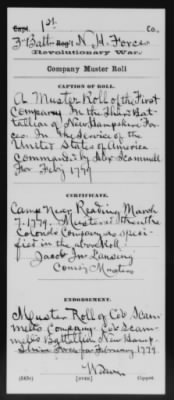 1st Co.,
Capt.
3 Batt. Reg't N. H. Forces
Revolutionary War.
Company Muster Roll
CAPTION OF ROLL.
A Muster Roll of the First
Company In the Third Bat-
tallion of New Hampshire For-
ces. In The Service of the
United States of America
Commanded by Alex Scammell
For Feby 1779
CERTIFICATE.
Camp Near Reading March
7, 1779. Mustered then the
Colonels Company as speci-
fied in the above Roll
Jacob Jn Lansing
Comsy Musters
ENDORSEMENT.
Muster Roll of Col. Scam-
mells Company Col. Scam-
mells Battallion New Hamp-
shire Forces for February 1779.
[OVER] Copyist.